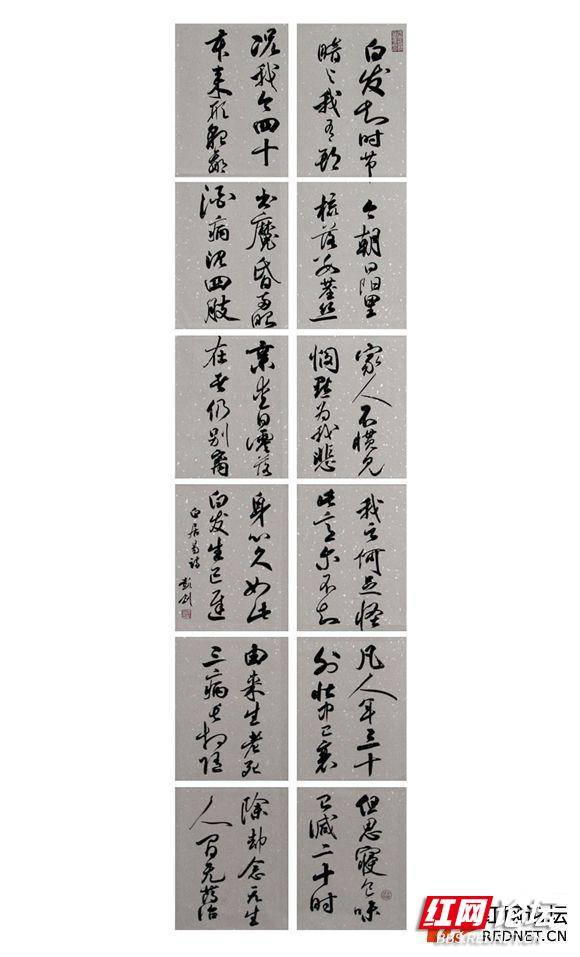 白发知时节
暗与我有期
今朝日阳里
梳落数茎丝
家人不惯见
悯默为我悲
我云何足怪
此意尔不知
凡人年三十
外壮中已衰
但思寝食味
已减二十时
况我今四十
本来形貌羸
书魔昏两眼
酒病沉四肢
亲爱日零落
在者仍别离
身心久如此
白发生已迟
白居易诗 彭剑
由来生老死
三病长相随
除却念无生
人间无药治
红网论坛
REDNET.CN